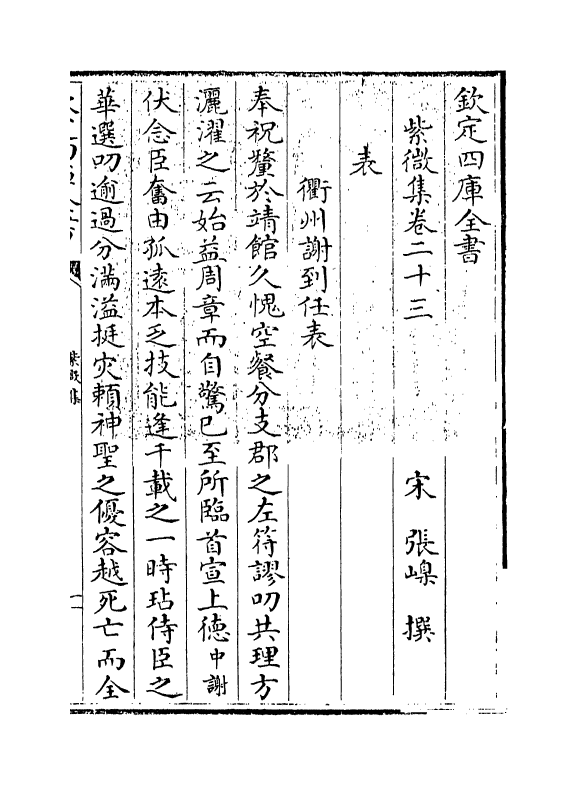 欽定四庫全書
紫微集卷二十三
宋 張嵲 撰
表
衢州謝到任表
奉祝釐於靖館久愧空餐分支郡之左符謬叨共理方
灑濯之云始益周章而自驚已至所臨首宣上德中謝
伏念臣奮由孤遠本乏技能逢千載之一時玷侍臣之
華選叨逾過分滿溢挻灾頼神聖之優容越死亡而全
紫微集